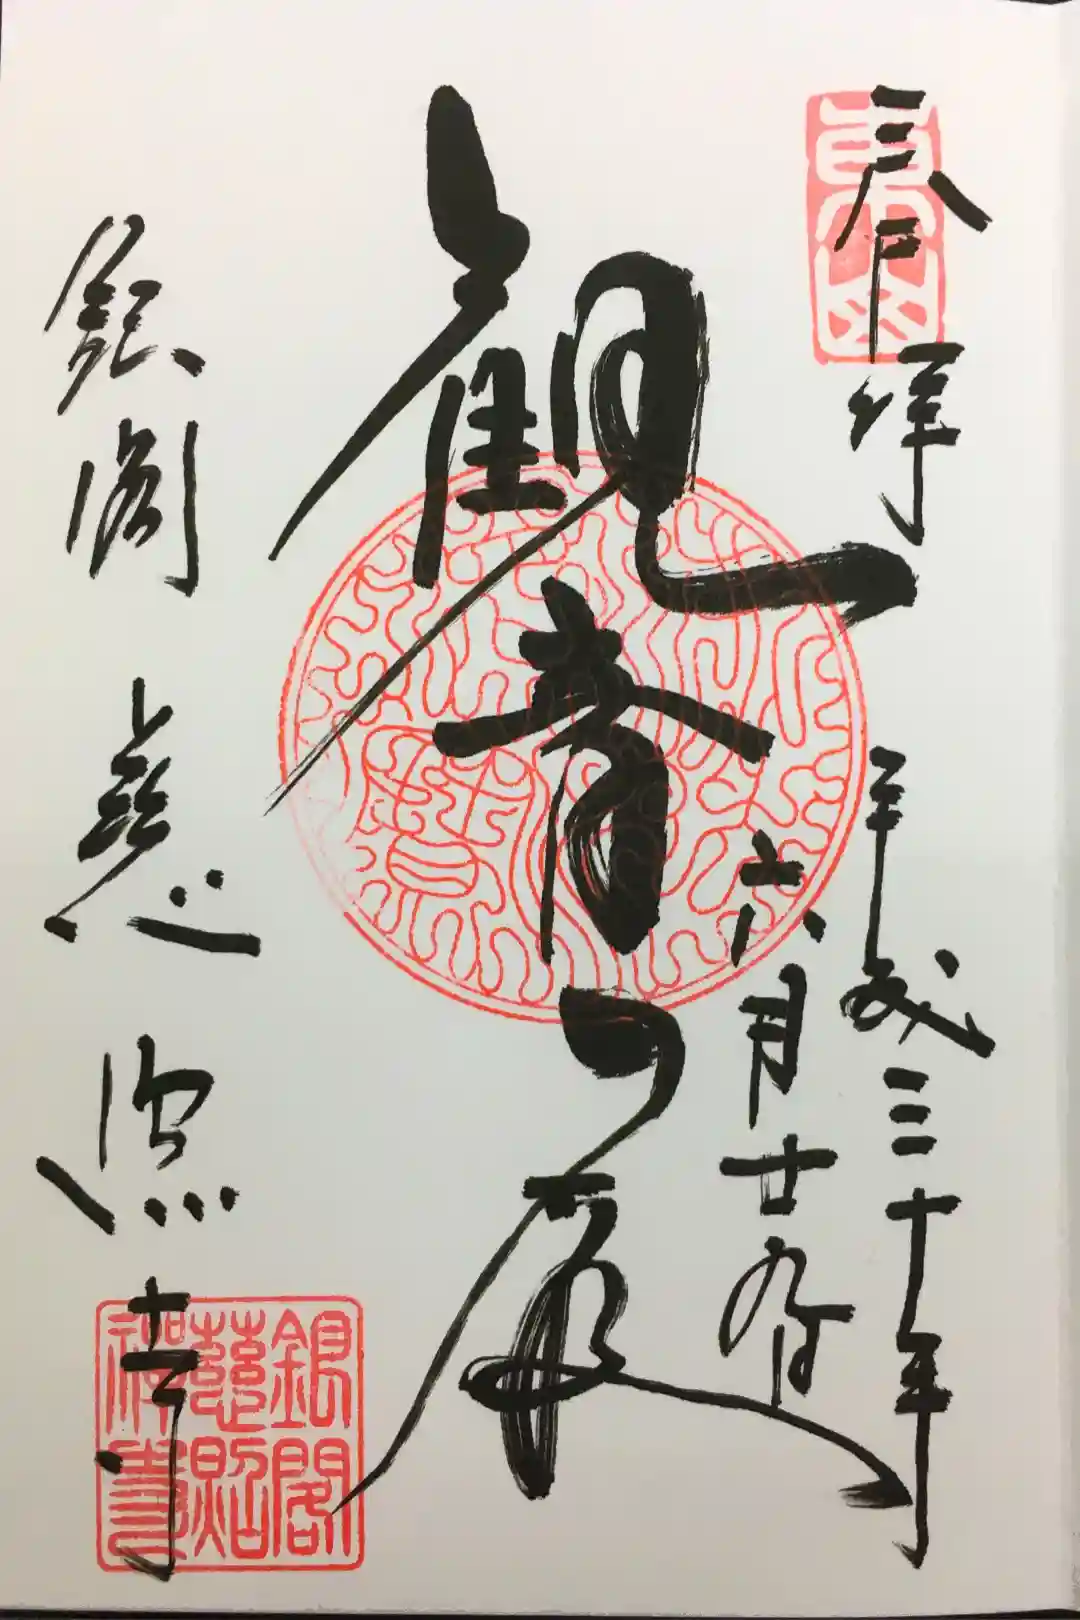 奉拝
東山
平成三十年
六月廿九日
観音殿
銀閣 慈照寺
銀閣
慈照
禪寺